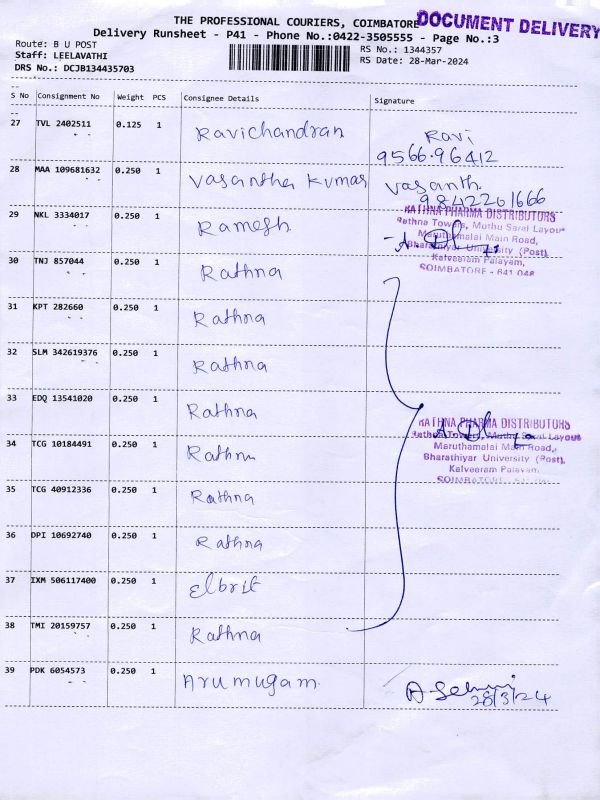 THE PROFESSIONAL COURIERS, COIMBATORE
DOCUMENT DELIVERY
Delivery Runsheet - P41 - Phone No.:0422-3505555 - Page No.:3
Route: B U POST
RS No.: 1344357
Staff: LEELAVATHI
RS Date: 28-Mar-2024
DRS No.: DCJB134435703
S No Consignment No Weight PCS Consignee Details Signature
27 TVL 2402511 0.125 1 Ravichandran Ravi
9566.96412
28 MAA 109681632 0.250 1 Vasantha Kumar Vasanth
9842201666
29 NKL 3334017 0.250 1 Ramesh
RATHNA PHARMA DISTRIBUTORS
Rathna Towers, Muthu Saral Layout
Maruthamalai Main Road,
Bharathiyar University (Post),
Kalveeram Palayam,
COIMBATORE - 641 046
30 TNJ 857044 0.250 1 Rathna
31 KPT 282660 0.250 1 Rathna
32 SLM 342619376 0.250 1 Rathna
33 EDQ 13541020 0.250 1 Rathna
RATHNA PHARMA DISTRIBUTORS
Rathna Towers, Muthu Saral Layout
Maruthamalai Main Road,
Bharathiyar University (Post),
Kalveeram Palayam,
34 TCG 10184491 0.250 1 Rathna
35 TCG 40912336 0.250 1 Rathna
36 DPI 10692740 0.250 1 Rathna
37 IXM 506117400 0.250 1 Elbrit
38 TMI 20159757 0.250 1 Rathna
39 PDK 6054573 0.250 1 Arumugam
28/3/24